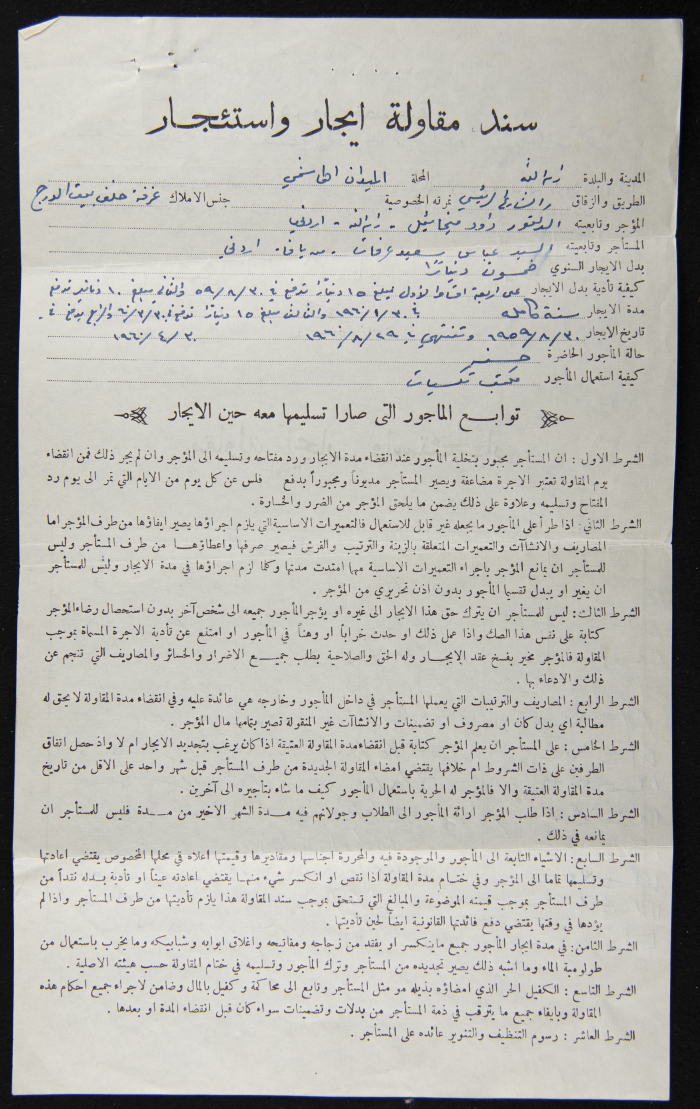 سند مقاولة ايجار واستئجار
المدينة والبلدة رام الله المحلة الميدان الهاشمي
الطريق والزقاق الشارع الرئيسي نمرته الخصوصية جنس الاملاك غرفة خلف بيت الدرج
المؤجر وتابعيته الدكتور داود ميخائيل - رام الله - اردني
المستأجر وتابعيته السيد عباس سعيد عرفات - من يافا - اردني
بدل الايجار السنوي خمسون دينارًا
كيفية تأدية بدل الايجار على اربعة اقساط الاول مبلغ ١٥ دينارًا تدفع في ٥٩/٨/٣٠ والثاني مبلغ ١٠ دنانير تدفع
مدة الايجار سنة كاملة في ١٩٦٠/١/٣٠ والثالث مبلغ ١٥ دينارًا تدفع في ٦٠/٣/٣٠ والرابع يدفع في
تاريخ الايجار ١٩٥٩/٨/٣٠ وتنتهي في ١٩٦٠/٨/٢٩ ١٩٦٠/٤/٣٠
حالة المأجور الحاضرة
كيفية استعمال المأجور مكتب تكسيات
توابع المأجور التى صارا تسليمها معه حين الايجار
الشرط الاول : ان المستأجر مجبور بتخلية المأجور عند انقضاء مدة الايجار ورد مفتاحه وتسليمه الى المؤجر وان لم يجر ذلك فمن انقضاء
يوم المقاولة تعتبر الاجرة مضاعفة ويصير المستأجر مديوناً ومجبوراً بدفع فلس عن كل يوم من الايام التي تمر الى يوم رد
المفتاح وتسليمه وعلاوة على ذلك يضمن ما يلحق المؤجر من الضرر والخسارة .
الشرط الثاني : اذا طرأ على المأجور ما يجعله غير قابل للاستعمال فالتعميرات الاساسية التي يلزم اجراؤها يصير ايفاؤها من طرف المؤجر اما
المصاريف والانشاآت والتعميرات المتعلقة بالزينة والترتيب والفرش فيصير صرفها واعطاؤهـا من طرف المستأجر وليس
للمستأجر ان يمانع المؤجر باجراء التعميرات الاساسية مهما امتدت مدتها وكلما لزم اجراؤها في مدة الايجار وليس للمستأجر
ان يغير او يبدل تقسيما المأجور بدون اذن تحريري من المؤجر .
الشرط الثالث : ليس للمستأجر ان يترك حق هذا الايجار الى غيره او يؤجر المأجور جميعه الى شخص آخر بدون استحصال رضاء المؤجر
كتابة على نفس هذا الصك واذا عمل ذلك او حدث خراباً او وهناً في المأجور او امتنع عن تأدية الاجرة المسماة بموجب
المقاولة فالمؤجر مخير بفسخ عقد الايجـار وله الحق والصلاحية بطلب جميـع الاضرار والخسائر والمصاريف التي تنجم عن
ذلك والادعاء بها .
الشرط الرابع : المصاريف والترتيبات التي يعملها المستأجر في داخل المأجور وخارجه هي عائدة عليه وفي انقضاء مدة المقاولة لا يحق له
مطالبة اي بدل كان او مصروف او تضمينات والانشاآت غير المنقولة تصير بتمامها مال المؤجر .
الشرط الخامس : على المستأجر ان يعلم المؤجر كتابة قبل انقضاء مدة المقاولة العتيقة اذا كان يرغب بتجديد الايجار ام لا واذ حصل اتفاق
الطرفين على ذات الشروط ام خلافها يقتضي امضاء المقاولة الجديدة من طرف المستأجر قبل شهر واحد على الاقل من تاريخ
مدة المقاولة العتيقة والا فالمؤجر له الحرية باستعمال المأجور كيف ما شاء بتأجيره الى آخرين .
الشرط السادس : اذا طلب المؤجر اراثة المأجور الى الطلاب وجولانهم فيه مـدة الشهر الاخير من مـدة فليس للمستأجر ان
يمانعه في ذلك .
الشرط السابع : الاشياء التابعة الى المأجور والموجودة فيه والمحررة اجناسها ومقاديرها وقيمتها اعلاه في محلها المخصوص يقتضي اعادتها
وتسليمها تماما الى المؤجر وفي ختـام مدة المقاولة اذا نقص او انكسر شيء منهـا يقتضي اعادته عيناً او تأدية بدله نقداً من
طرف المستأجر بموجب قيمته الموضوعة والمبالغ التي تستحق بموجب سند المقاولة هذا يلزم تأديتها من طرف المستأجر واذا لم
يؤدها في وقتها يقتضي دفع فائدتها القانونية ايضاً لحين تأديتها .
الشرط الثامن : في مدة ايجار المأجور جميع ماينكسر او يفقد من زجاجه ومفاتيحه واغلاق ابوابه وشبابيكه وما يخرب باستعمال من
طولومبة الماء وما اشبه ذلك يصير تجديده من المستأجر وترك المأجور وتسليمه في ختام المقاولة حسب هيئته الاصلية .
الشرط التاسع : الكفيل الحر الذي امضاؤه بذيله هو مثل المستأجر وتابع الى محاكمة وكفيل بالمال وضامن لاجراء جميع احكام هذه
المقاولة وبايفاء جميع ما يترقب في ذمة المستأجر من بدلات وتضمينات سواء كان قبل انقضاء المدة او بعدها .
الشرط العاشر : رسوم التنظيف والتنوير عائده على المستأجر .